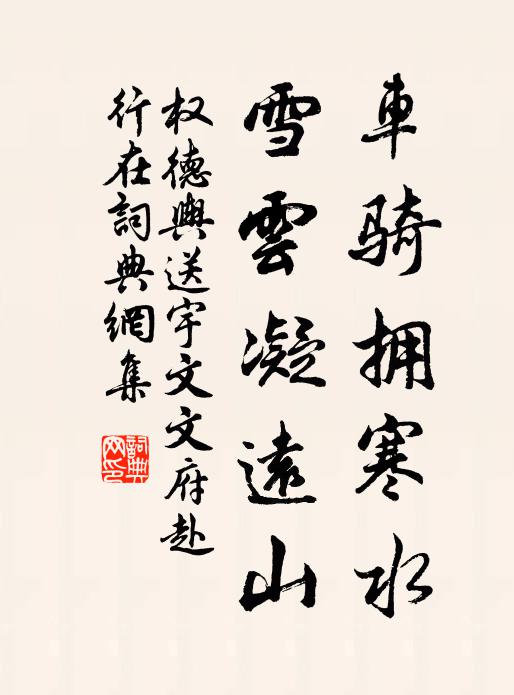 車骑拥寒水
雪雲凝遠山
权德輿送宇文文府赴
行在詞典網集
詞典网印